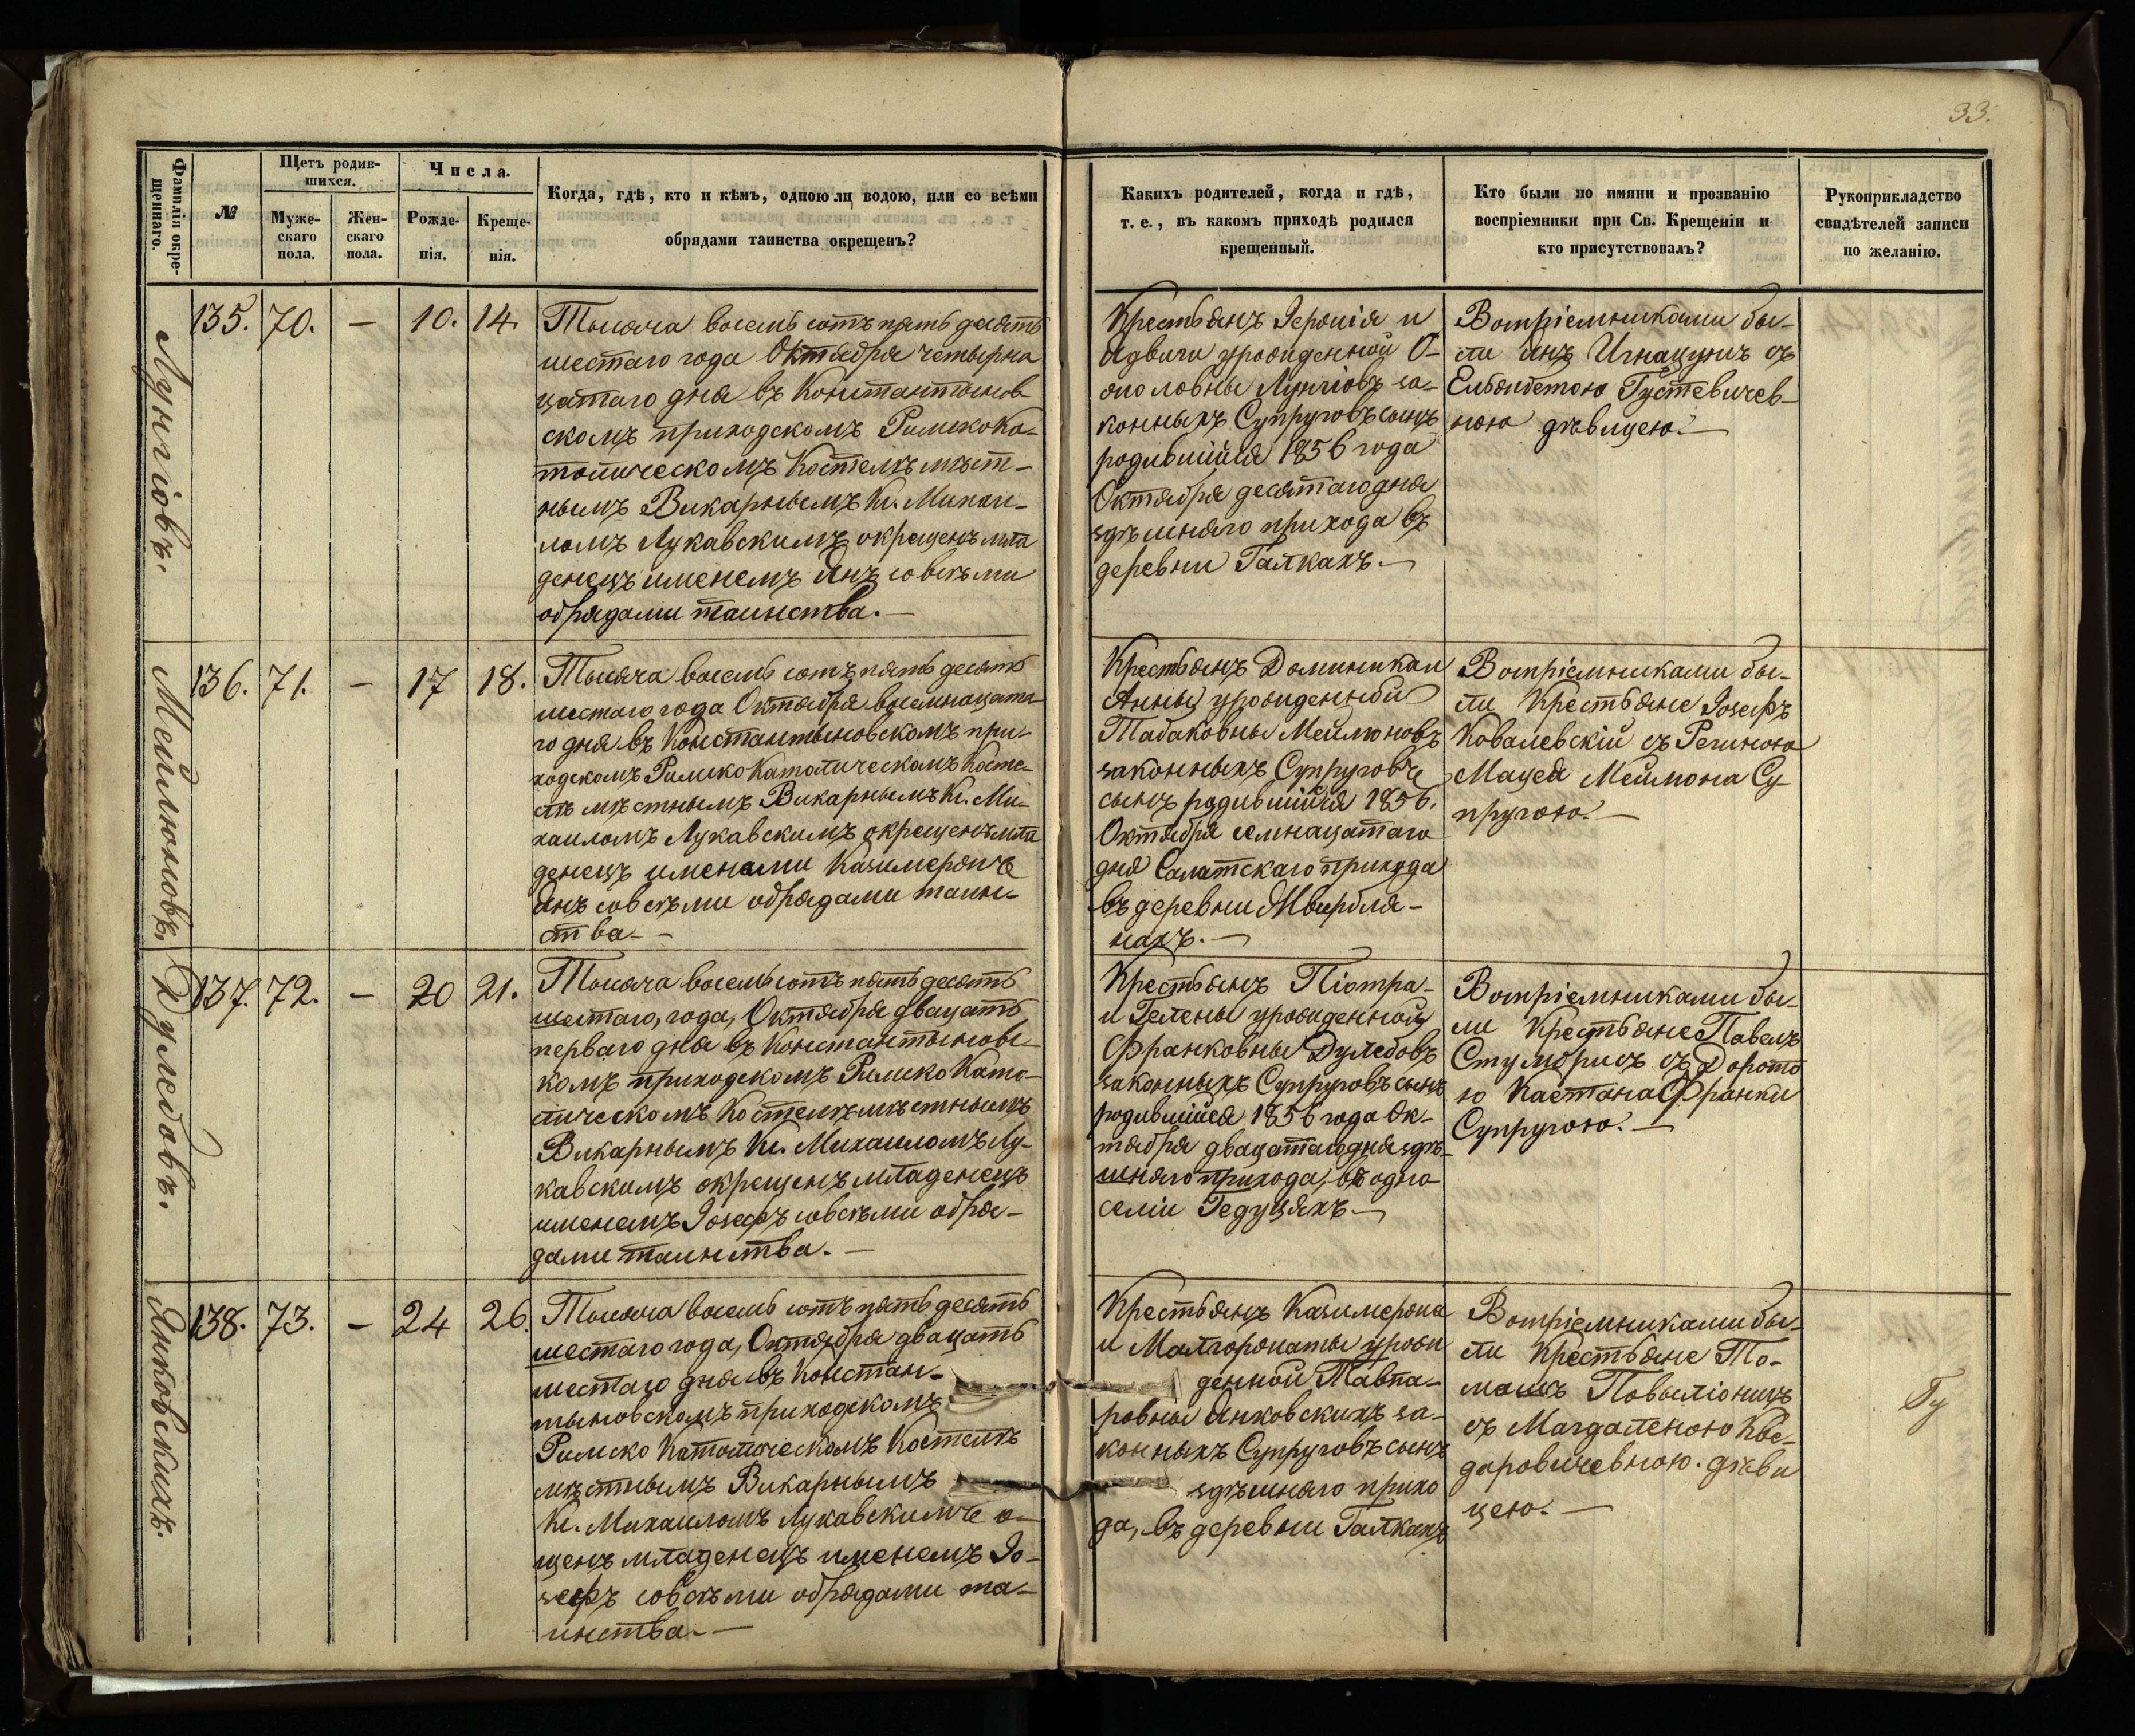 33.
Фамилія окре-
щеннаго.
№
Щетъ родив-
шихся.
Муже-
скаго
пола.
Жен-
скаго
пола.
Числа.
Рожде-
нія.
Креще-
нія.
Когда, гдѣ, кто и кѣмъ, одною ли водою, или со всѣми
обрядами таинства окрещенъ?
Какихъ родителей, когда и гдѣ,
т. е., въ какомъ приходѣ родился
крещенный.
Кто были по имяни и прозванію
воспріемники при Св. Крещеніи и
кто присутствовалъ?
Рукоприкладство
свидѣтелей записи
по желанію.
Лунгіовъ.
135. 70. — 10. 14.
Тысяча восемь сотъ пять десятъ
шестаго года Октября четырна
цатаго дня въ Константынов
скомъ приходскомъ Римско Ка-
толическомъ Костелѣ мѣст-
нымъ Викарнымъ Кс. Михаи-
ломъ Лукавскимъ окрещенъ мла
денецъ именемъ Янъ со всѣми
обрядами таинства. —
Крестьянъ Іеронія и
Ядвиги урожденной
законныхъ Супруговъ сынъ
родившійся 1856 года
Октября десятаго дня
здѣшняго прихода въ
деревни Галкахъ. —
Вотпріемниками бы-
ли Янъ Игнацунъ съ
Ельжбетою Густевичев-
ною дѣвицею. —
Мейлюновъ.
136. 71. — 17 18.
Тысяча восемь сотъ пять десятъ
шестаго года Октября восемнацата
го дня въ Константыновскомъ при-
ходскомъ Римско Католическомъ Косте-
лѣ мѣстнымъ Викарнымъ Кс. Ми-
хаиломъ Лукавскимъ окрещенъ мла
денецъ именами Казимержъ
Янъ со всѣми обрядами таин-
ства. —
Крестьянъ Доминика и
Анны урожденной
Табаковны Мейлюновъ
законныхъ Супруговъ
сынъ родившійся 1856.
Октября семнацатаго
дня Салатскаго прихода
въ деревни Жвирбля-
нахъ. —
Вотпріемниками бы-
ли Крестьяне Іозефъ
Ковалевскій съ Региною
Мацея Мейлюна Су-
пругою. —
Дулебовъ.
137. 72. — 20 21.
Тысяча восемь сотъ пять десятъ
шестаго, года, Октября двацать
перваго дня въ Константыновс-
комъ приходскомъ Римско Като-
лическомъ Костелѣ мѣстнымъ
Викарнымъ Кс. Михаиломъ Лу-
кавскимъ окрещенъ младенецъ
именемъ Іозефъ со всѣми обря-
дами таинства. —
Крестьянъ Піотра-
и Гелены урожденной
Франковны Дулебовъ
законныхъ Супруговъ сынъ
родившійся 1856 года Ок-
тября двацатаго дня здѣ-
шняго прихода, въ одно
селіи Гедуцяхъ. —
Вотпріемниками бы-
ли Крестьяне Павелъ
Стумбрисъ съ Дорото
ю Каетана Франки
Супругою. —
Янковскихъ.
138. 73. — 24 26.
Тысяча восемь сотъ пять десятъ
шестаго года, Октября двацать
шестаго дня въ Констан-
тыновскомъ приходскомъ
Римско Католическомъ Костелѣ
мѣстнымъ Викарнымъ
Кс. Михаиломъ Лукавскимъ о-
щенъ младенецъ именемъ Іо-
зефъ со всѣми обрядами та-
инства. —
Крестьянъ Казимержа
и Малгоржаты урожд
денной
ровны Янковскихъ за-
конныхъ Супруговъ сынъ
здѣшняго прихо
да, въ деревни Галкахъ
Вотпріемниками бы-
ли Крестьяне То-
машъ
съ Магдаленою Кве-
даровичевною. дѣви
цею. —